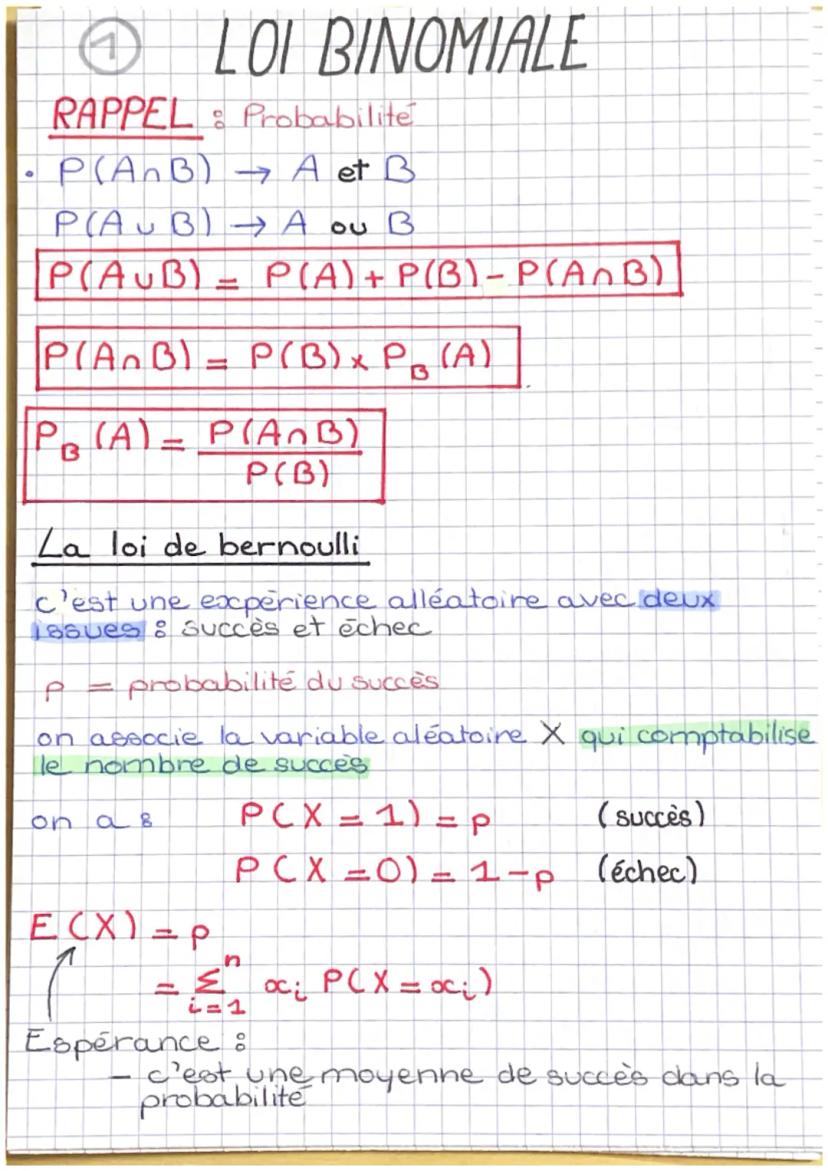 1 LOI BINOMIALE
RAPPEL : Probabilité
• P(A∩B) → A et B
P(A∪B) → A ou B
P(A∪B) = P(A) + P(B) - P(A∩B)
P(A∩B) = P(B) x P_B (A)
P_B (A) = P(A∩B) / P(B)
La loi de bernoulli
c'est une expérience alléatoire avec deux
issues : succès et échec
p = probabilité du succès
on associe la variable aléatoire X qui comptabilise
le nombre de succès
on a : P(X = 1) = p (succès)
P(X = 0) = 1-p (échec)
E(X) = p
= Σ_{i=1}^{n} x_i P(X = x_i)
Espérance :
- c'est une moyenne de succès dans la
probabilité